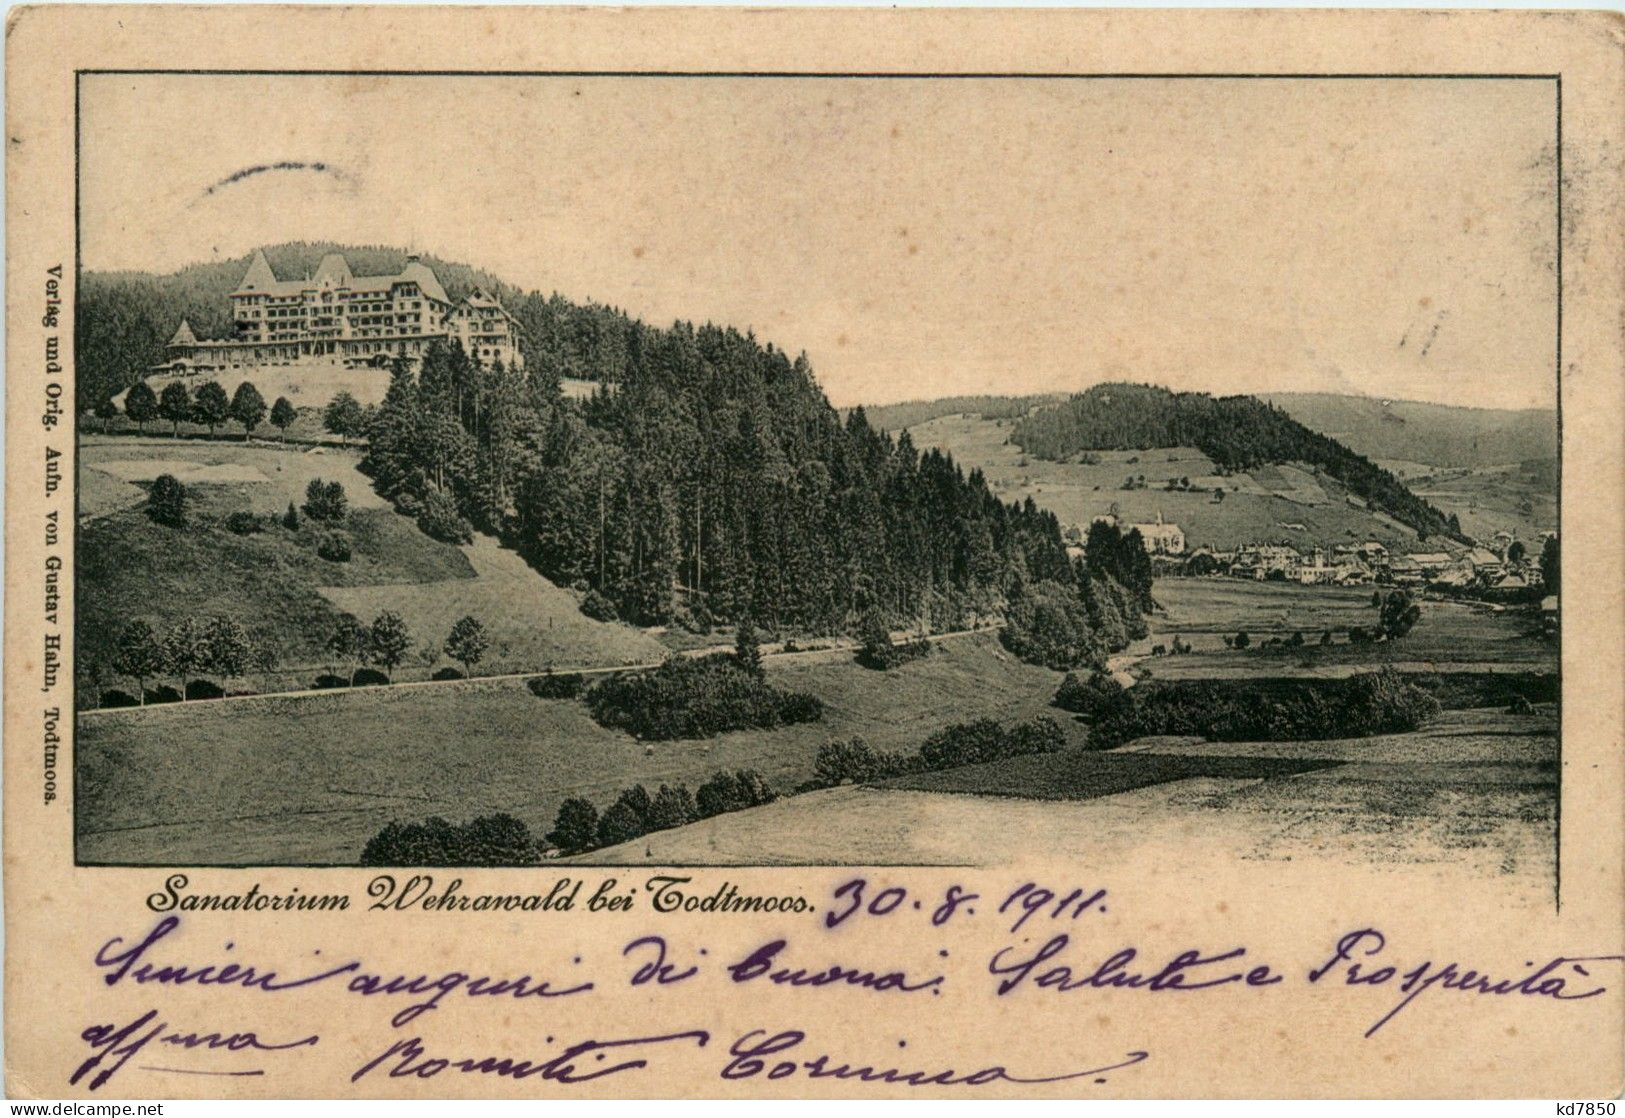 Verlag und Orig. Aufn. von Gustav Hahn, Todtmoos.
Sanatorium Wehrawald bei Todtmoos. 30. 8. 1911.
Sinceri auguri di buona: Salute e Prosperità
affma Romiti Corinna.
kd7850